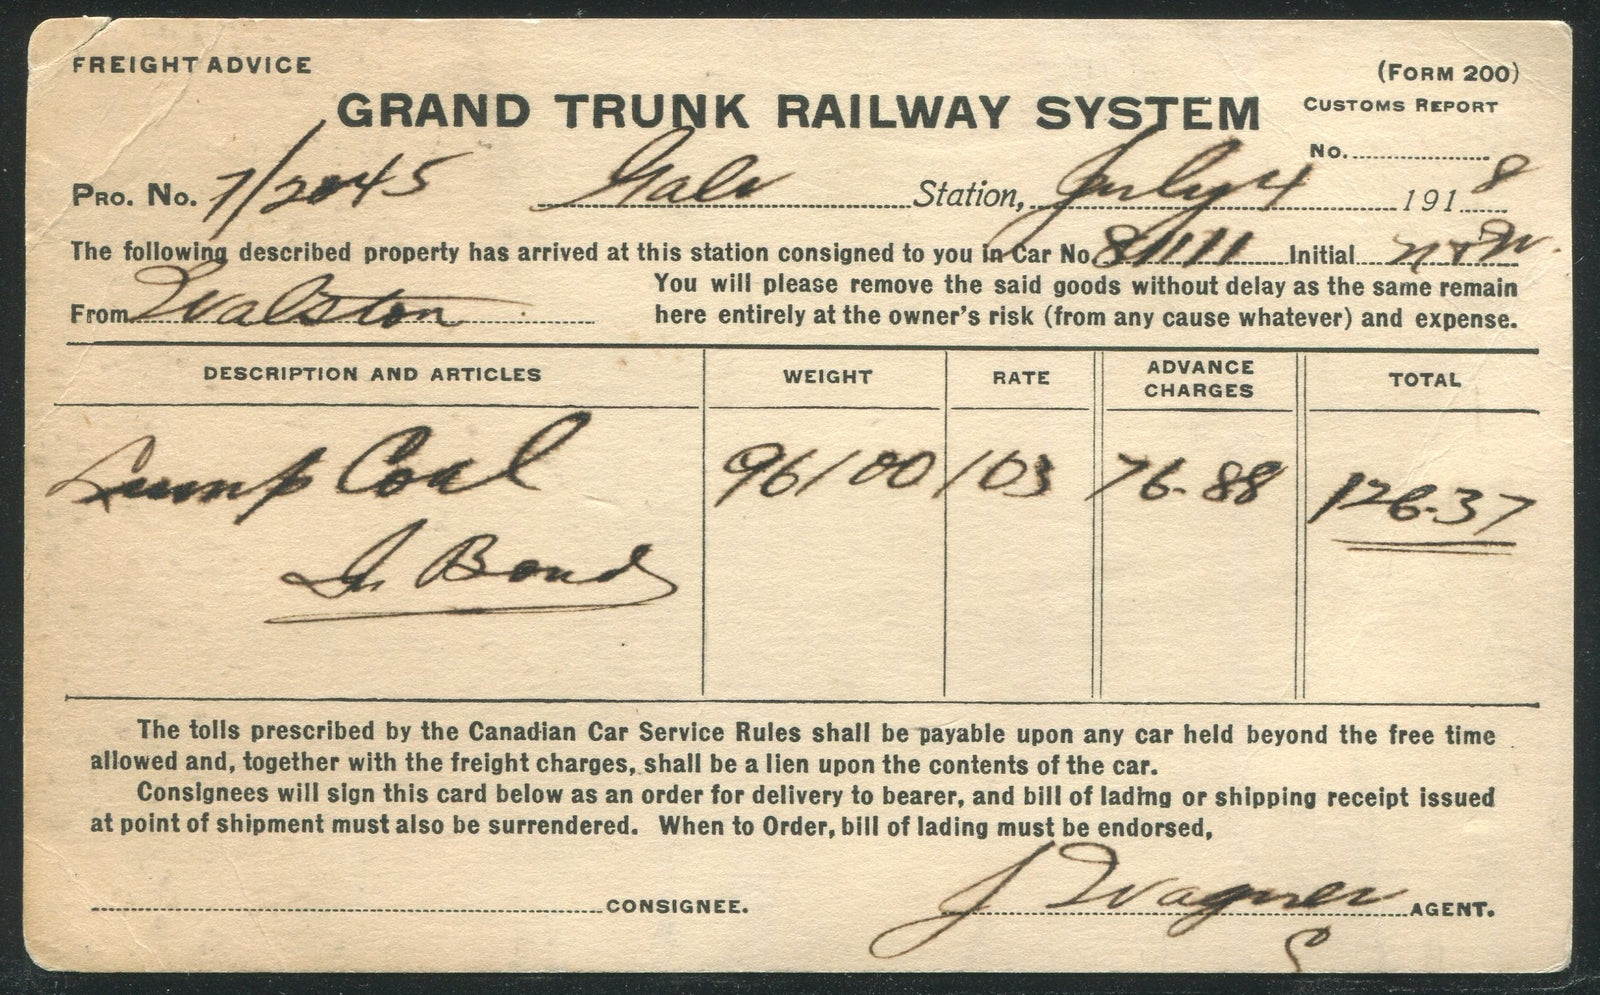 FREIGHT ADVICE
(FORM 200)
GRAND TRUNK RAILWAY SYSTEM
CUSTOMS REPORT
No.
PRO. No. 7/2045 Galt Station, July 4 1918
The following described property has arrived at this station consigned to you in Car No. 81111 Initial N&W.
From Walston
You will please remove the said goods without delay as the same remain
here entirely at the owner's risk (from any cause whatever) and expense.
DESCRIPTION AND ARTICLES WEIGHT RATE ADVANCE CHARGES TOTAL
Lump Coal 96100 103 76.88 126.37
In Bond
The tolls prescribed by the Canadian Car Service Rules shall be payable upon any car held beyond the free time
allowed and, together with the freight charges, shall be a lien upon the contents of the car.
Consignees will sign this card below as an order for delivery to bearer, and bill of lading or shipping receipt issued
at point of shipment must also be surrendered. When to Order, bill of lading must be endorsed,
CONSIGNEE. J Wagner AGENT.